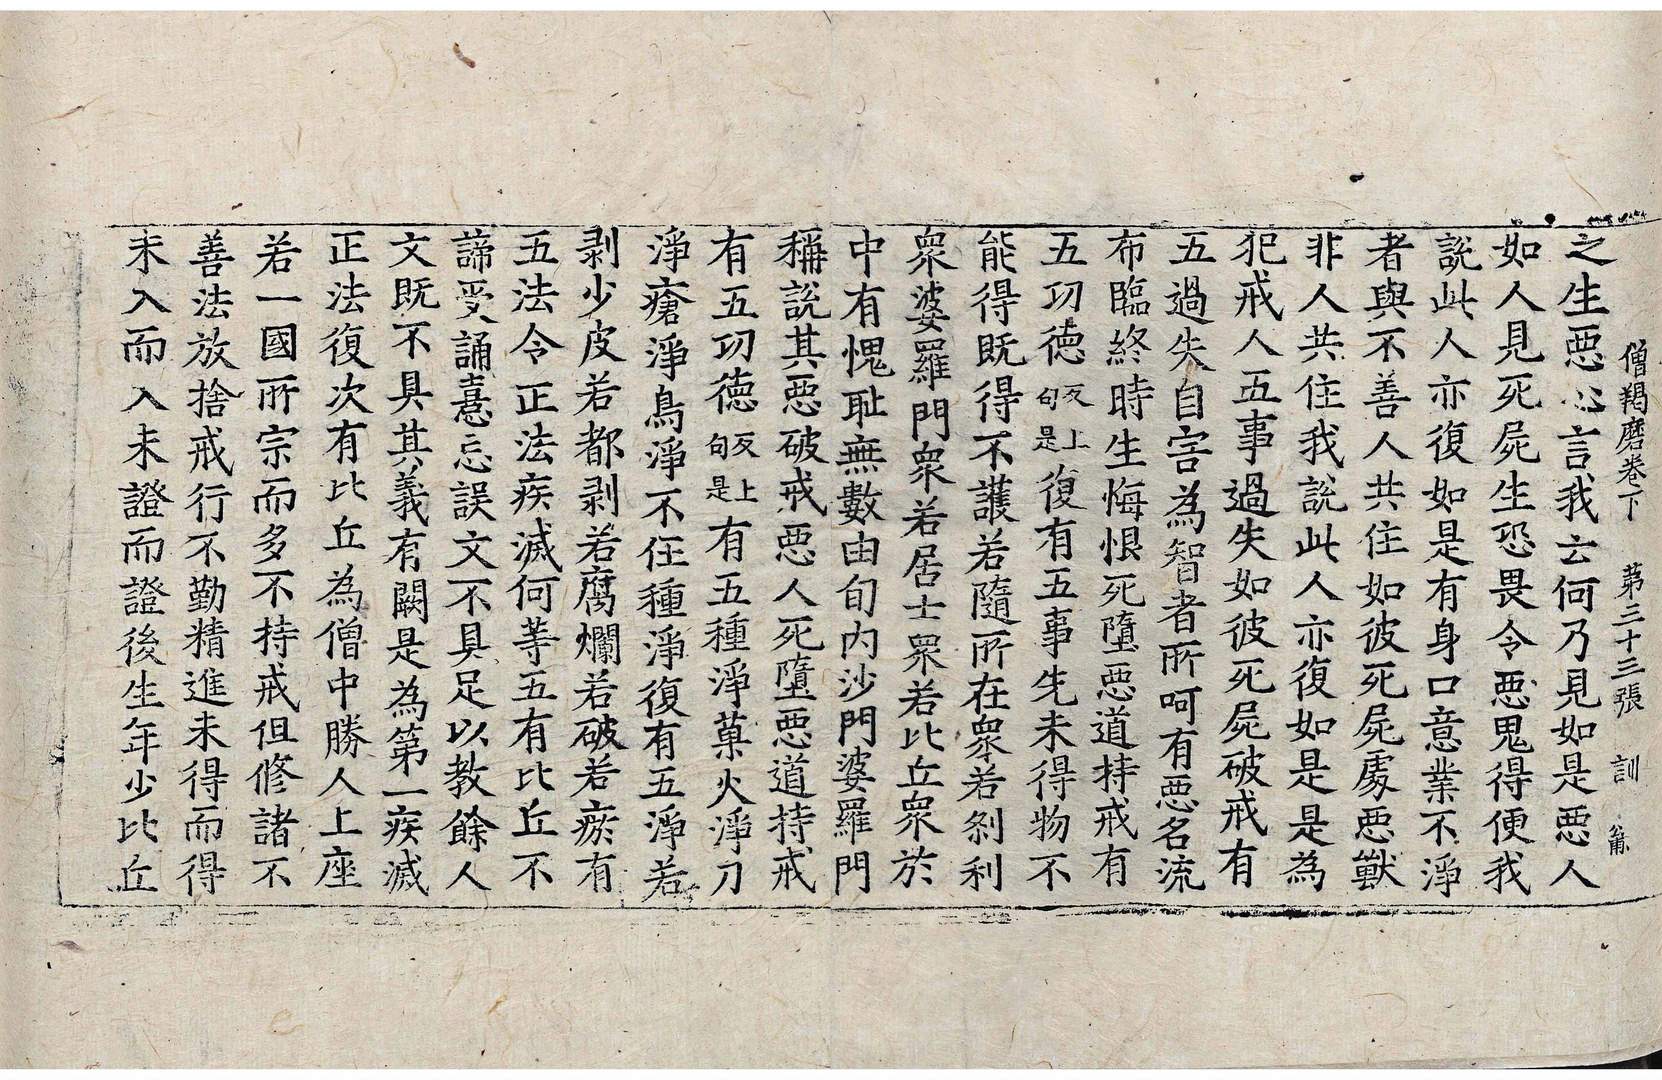 僧羯磨卷下 第三十三張 訓
之生惡心言我云何乃見如是惡人
如人見死屍生恐畏令惡鬼得便我
說此人亦復如是有身口意業不淨
者與不善人共住如彼死屍處惡獸
非人共住我說此人亦復如是是為
犯戒人五事過失如彼死屍破戒有
五過失自害為智者所呵有惡名流
布臨終時生悔恨死墮惡道持戒有
五功德反上句是復有五事先未得物不
能得既得不護若隨所在衆若刹利
衆婆羅門衆若居士衆若比丘衆於
中有愧恥無數由旬內沙門婆羅門
稱說其惡破戒惡人死墮惡道持戒
有五功德反上句是有五種淨菓火淨刀
淨瘡淨鳥淨不任種淨復有五淨若
剥少皮若都剥若腐爛若破若瘀有
五法令正法疾滅何等五有比丘不
諦受誦憙忘誤文不具足以教餘人
文既不具其義有闕是為第一疾滅
正法復次有比丘為僧中勝人上座
若一國所宗而多不持戒但修諸不
善法放捨戒行不勤精進未得而得
未入而入未證而證後生年少比丘